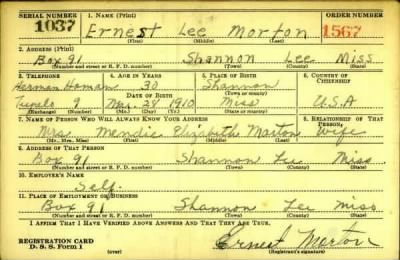 SERIAL NUMBER 1. NAME (Print) ORDER NUMBER
1037 Ernest Lee Morton 1567
(First) (Middle) (Last)
2. ADDRESS (Print)
Box 91 Shannon Lee Miss
(Number and street or R. F. D. number) (Town) (County) (State)
3. TELEPHONE 4. AGE IN YEARS 5. PLACE OF BIRTH 6. COUNTRY OF CITIZENSHIP
Herman Homan 30 Shannon
DATE OF BIRTH (Town or county)
Tupelo 9 Mar. 28 1910 Miss U.S.A
(Exchange) (Number) (Mo.) (Day) (Yr.) (State or country)
7. NAME OF PERSON WHO WILL ALWAYS KNOW YOUR ADDRESS 8. RELATIONSHIP OF THAT PERSON
Mrs Mendie Elizabeth Morton Wife
(Mr., Mrs., Miss) (First) (Middle) (Last)
9. ADDRESS OF THAT PERSON
Box 91 Shannon Lee Miss
(Number and street or R. F. D. number) (Town) (County) (State)
10. EMPLOYER'S NAME
Self
11. PLACE OF EMPLOYMENT OR BUSINESS
Box 91 Shannon Lee Miss
(Number and street or R. F. D. number) (Town) (County) (State)
I AFFIRM THAT I HAVE VERIFIED ABOVE ANSWERS AND THAT THEY ARE TRUE.
REGISTRATION CARD
D. S. S. Form 1 (over) Ernest Morton
(Registrant's signature)